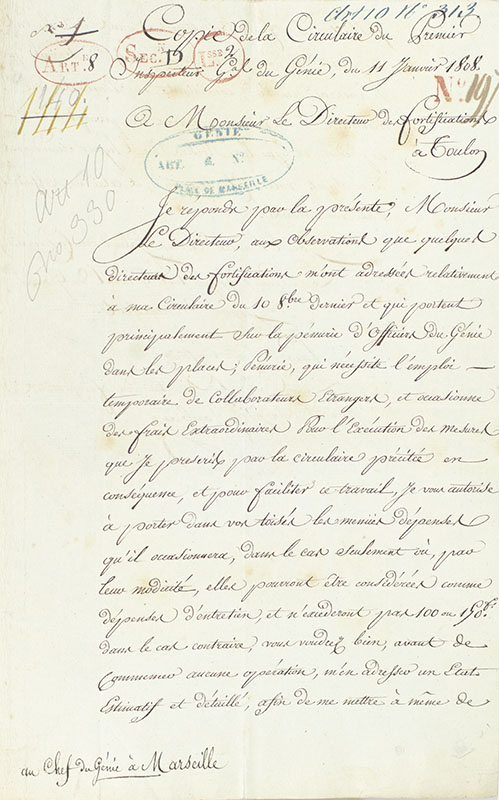 Art 10 N° 313
N° 1
Copie de la Circulaire du Premier
ART. 8 SEC. 12 L.SSE 2
Inspecteur Gal du Génie, du 11 Janvier 1808.
N° 19
A Monsieur Le Directeur des fortifications
à Toulon
GÉNIE
ART. & N°
PLACE DE MARSEILLE
Art 10
no 330
Je réponds par la présente, Monsieur
Le Directeur, aux Observations que quelques
directeurs des fortifications m'ont adressées relativement
à ma Circulaire du 10 8bre dernier et qui portent
principalement sur la pénurie d'Officiers du Génie
dans les places; Pénurie, qui nécessite l'emploi —
temporaire de Collaborateurs Etrangers, et occasionne
des frais Extraordinaires Pour l'Exécution des mesures
que Je prescris par la circulaire précitée en
conséquence, et pour faciliter ce travail, Je vous autorise
à porter dans vos toisés les menües dépenses
qu'il occasionnera, dans le cas seulement où, par
leur modicité, elles pourront être considérées comme
dépenses d'entretien, et n'excéderont pas 100 ou 150 fr.
dans le cas contraire, vous voudrez bien, avant de
Commencer aucune opération, m'en adresser un Etat
Estimatif et détaillé, afin de me mettre à même de
au Chef du Génie à Marseille